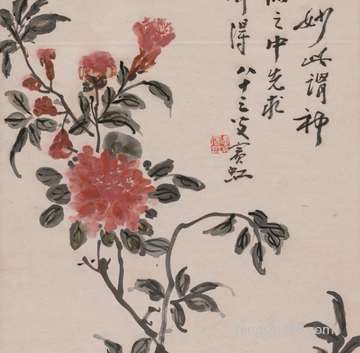 妙此謂神
之中先求
得八十三叟賓虹